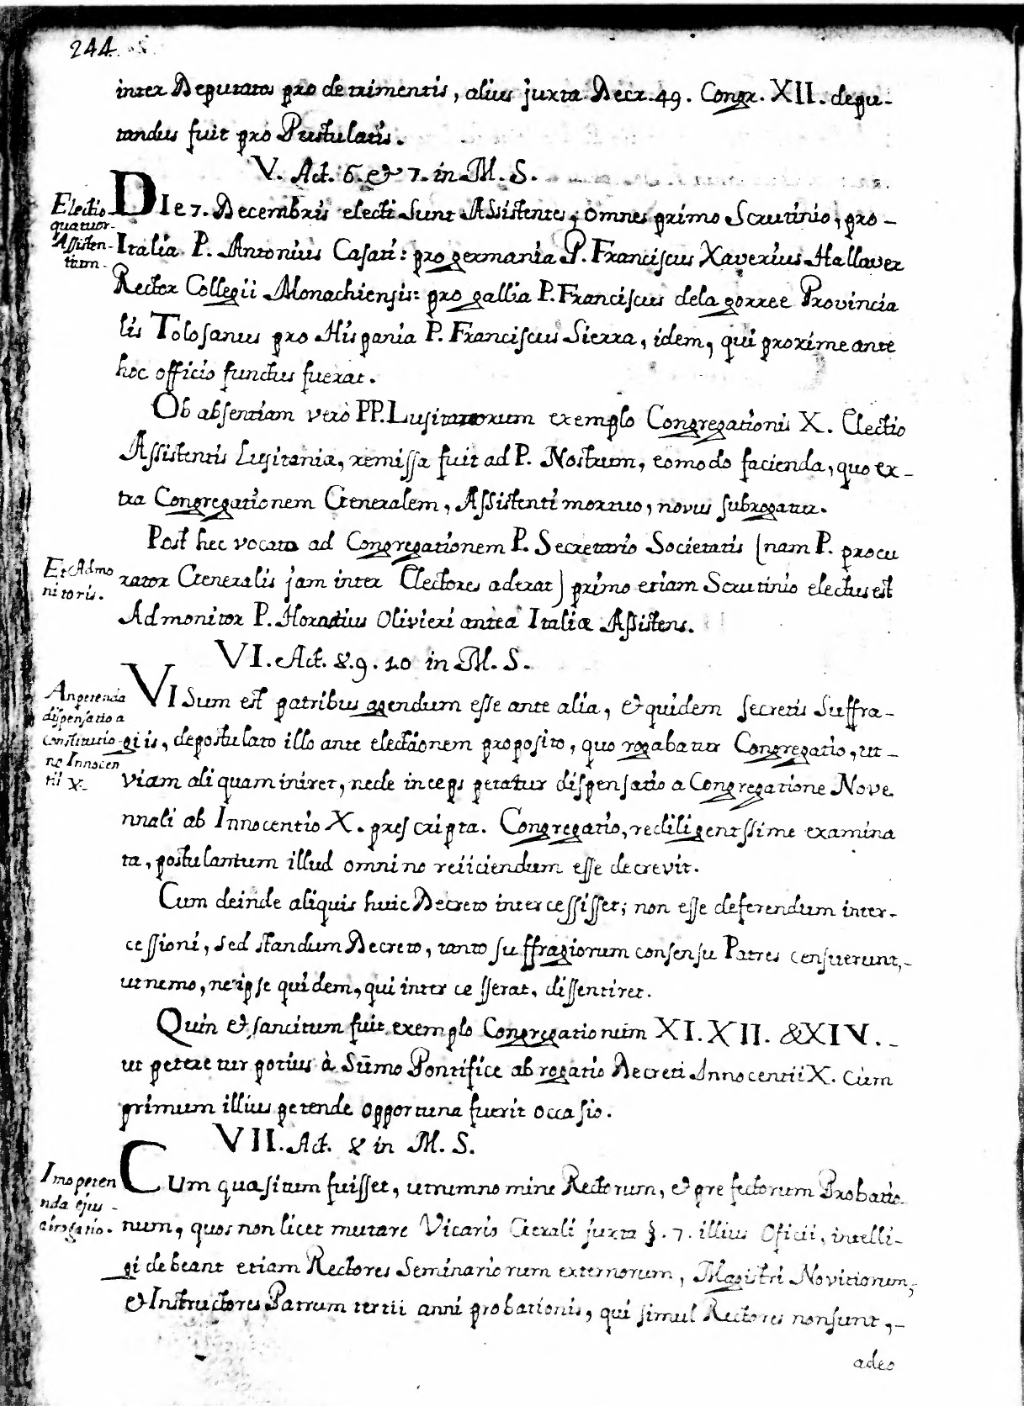 244.
inter Deputatos pro detrimentis, alius juxta Decr. 49. Congr. XII. depu-
tandus fuit pro Postulatis.
V. Act. 6. & 7. in M. S.
Electio
quatuor
Assisten-
tium.
DIe 7. Decembris electi sunt Assistentes, omnes primo Scrutinio, pro-
Italia P. Antonius Casati: pro germania P. Franciscus Xaverius Hallaver
Rector Collegii Monachiensis: pro gallia P. Franciscus dela gorree Provincia
lis Tolosanus pro Hispania P. Franciscus Sierra, idem, qui proxime ante
hoc officio functus fuerat.
Ob absentiam vero PP. Lusitanorum exemplo Congregationis X. Electio
Assistentis Lusitania, remissa fuit ad P. Nostrum, eo modo facienda, quo ex-
tra Congregationem Generalem, Assistenti mortuo, novus subrogatur.
Et Admo
nitoris.
Post hec vocato ad Congregationem P. Secretario Societatis (nam P. procu
rator Generalis jam inter Electores aderat) primo etiam Scrutinio electus est
Admonitor P. Horatius Olivieri antea Italiæ Assistens.
VI. Act. 8. 9. 10 in M. S.
An petenda
dispensatio a
Constitutio
ne Innocen
tii X.
VISum est patribus agendum esse ante alia, & quidem secretis Suffra-
giis, de postulato illo ante electionem proposito, quo rogabatur Congregatio, ut-
viam aliquam iniret, ne de inceps petatur dispensatio a Congregatione Nove
nnali ab Innocentio X. prescripta. Congregatio, re diligentssime examina
ta, postulantum illud omnino reiiciendum esse decrevit.
Cum deinde aliquis huic Decreto intercessisset; non esse deferendum inter-
cessioni, sed standum Decreto, tanto suffragiorum consensu Patres censuerunt,-
ut nemo, ne ipse quidem, qui intercesserat, dissentiret.
Quin & sancitum fuit exemplo Congregationum XI. XII. & XIV. -
ut peteretur potius à Sumo Pontifice abrogatio Decreti Innocentii X. Cum
primum illius petende opportuna fuerit occasio.
VII. Act. 8 in M. S.
Imo peten
nda ejus
abrogatio.
Cum quasitum fuisset, utrum nomine Rectorum, & prefectorum Probatio
num, quos non licet mutare Vicario Gerali juxta §. 7. illius Oficii, intelli-
gi debeant etiam Rectores Seminariorum externorum, Magistri Novitiorum,
& Instructores Patrum tertii anni probationis, qui simul Rectores non sunt,-
adeo